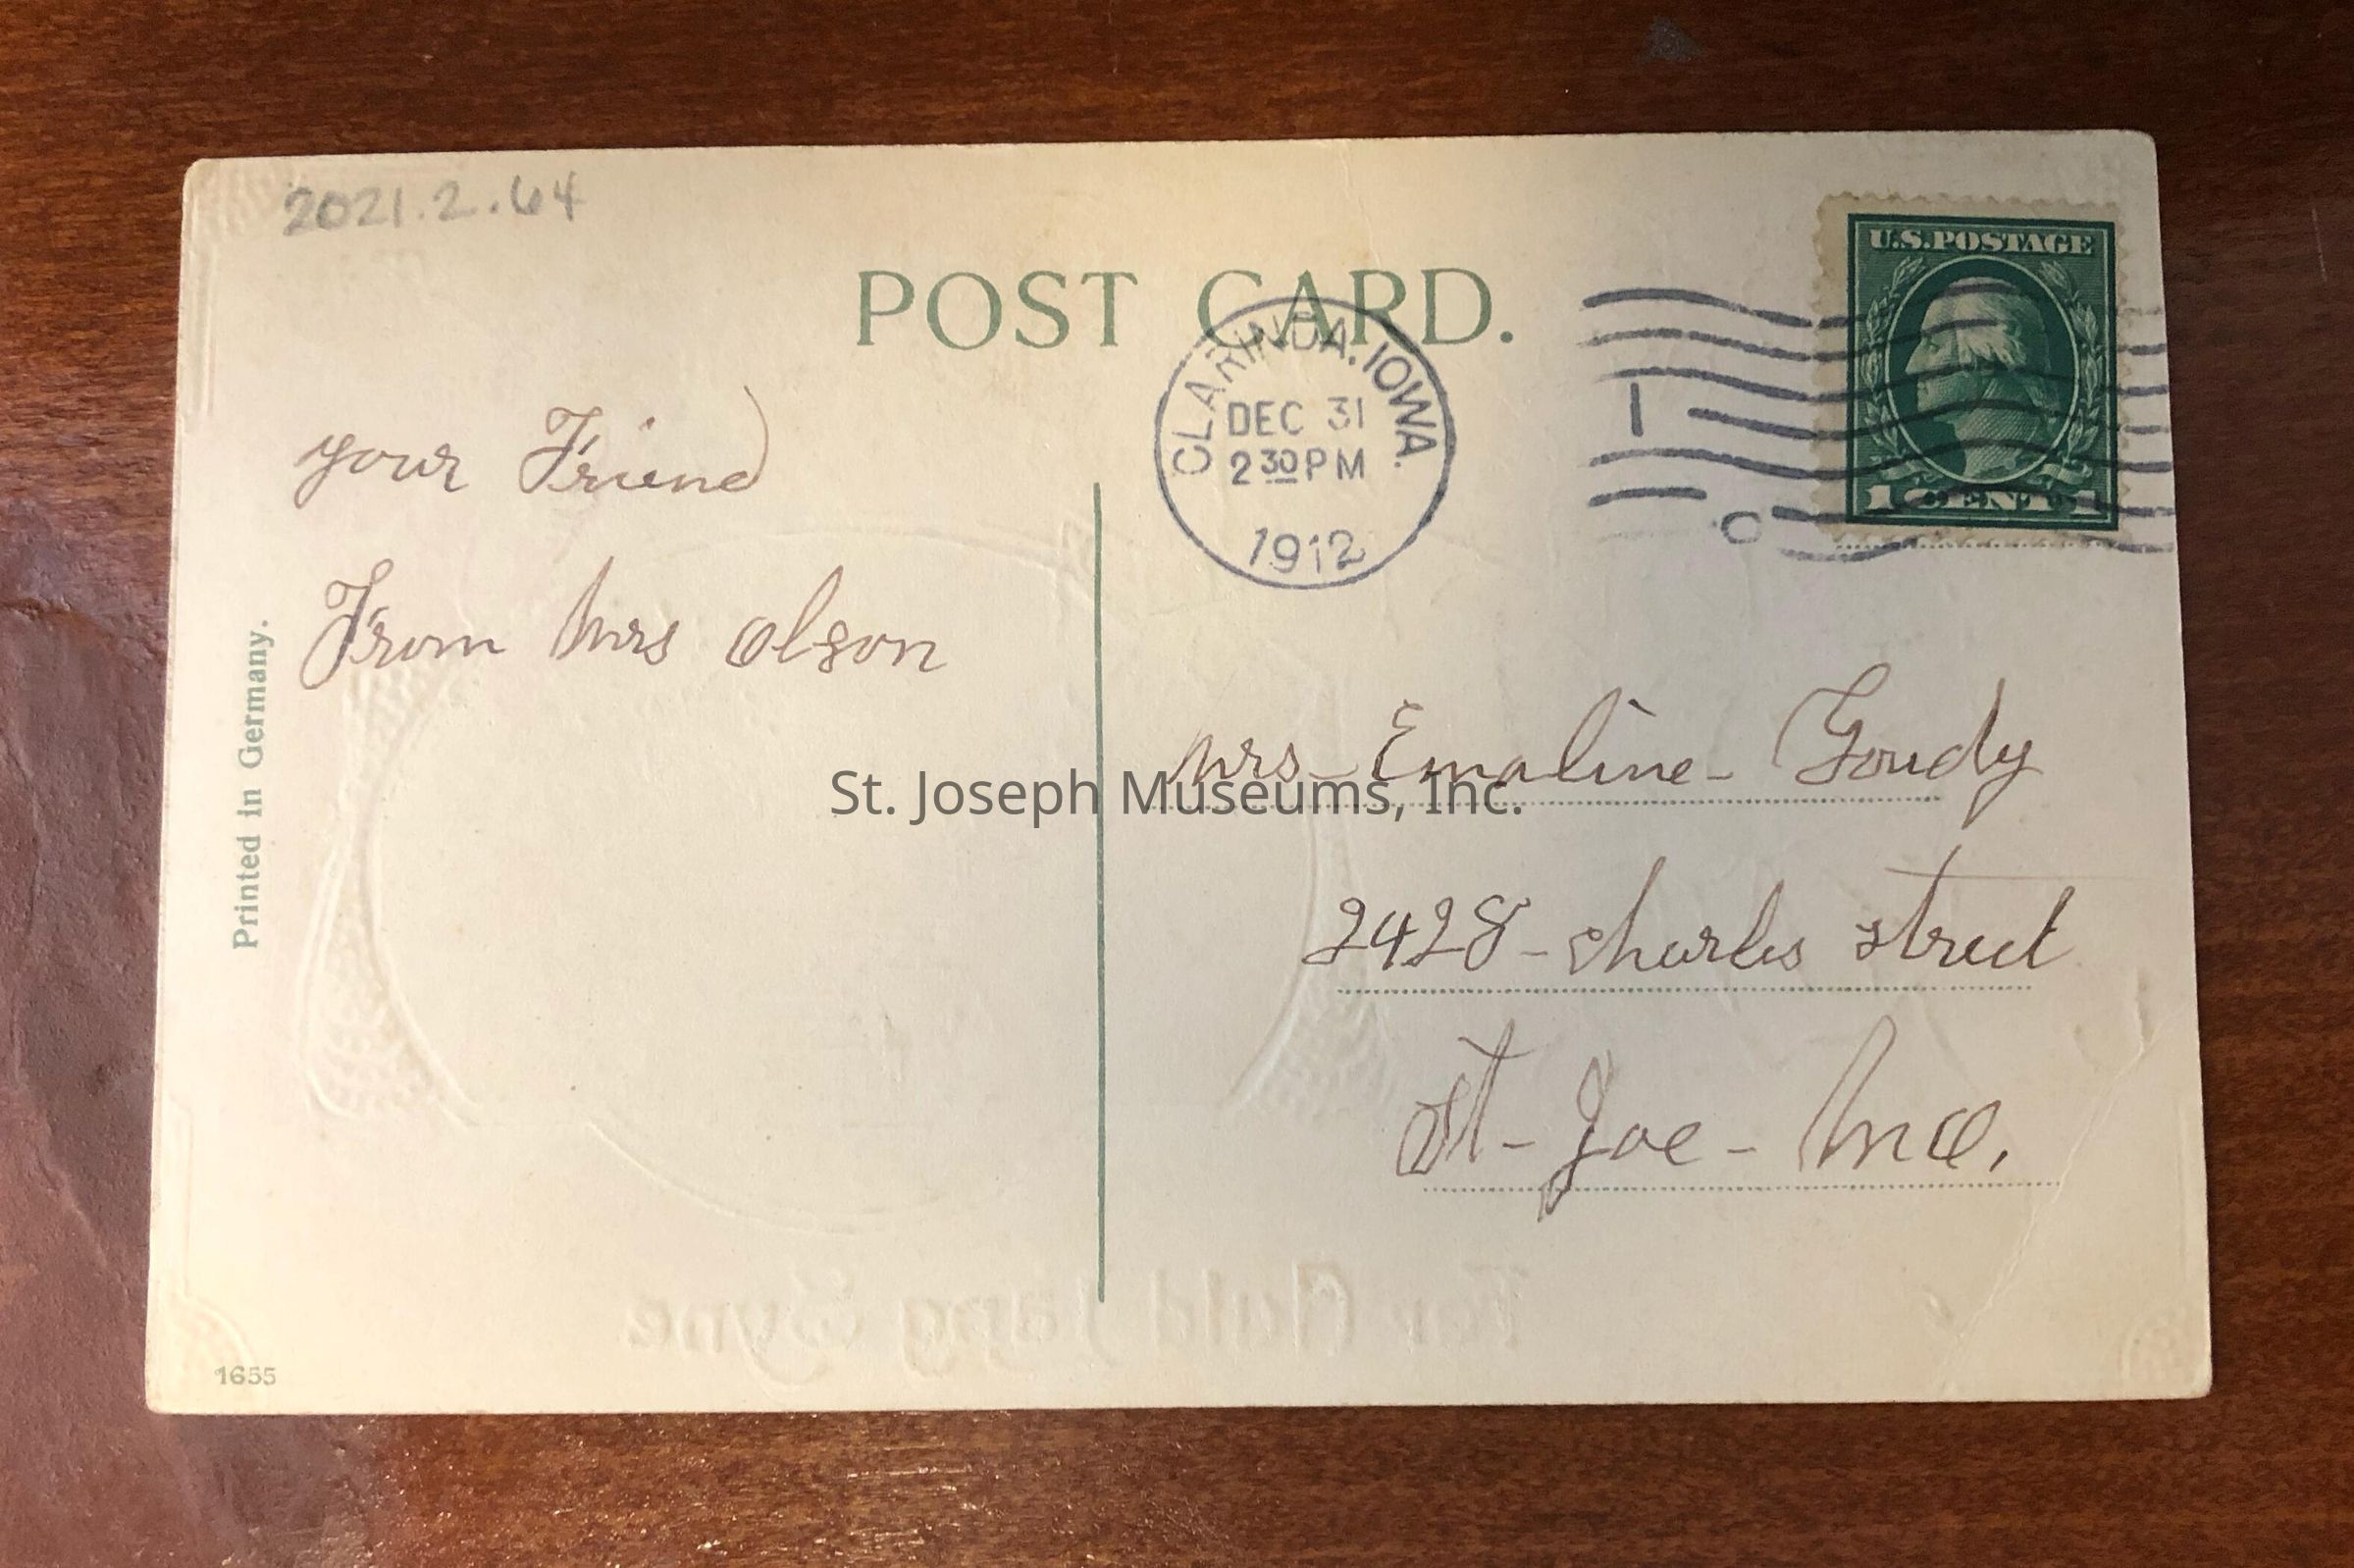 2021.2.64
POST CARD.
U.S. POSTAGE
1 CENT 1
CLARINDA. IOWA.
DEC 31
2 30 PM
1912
your Friend
From Mrs Olson
Printed in Germany.
Mrs - Emaline - Goudy
St. Joseph Museums, Inc.
2428 - Charles street
St - Joe - Mo.
For Auld Lang Syne
1655